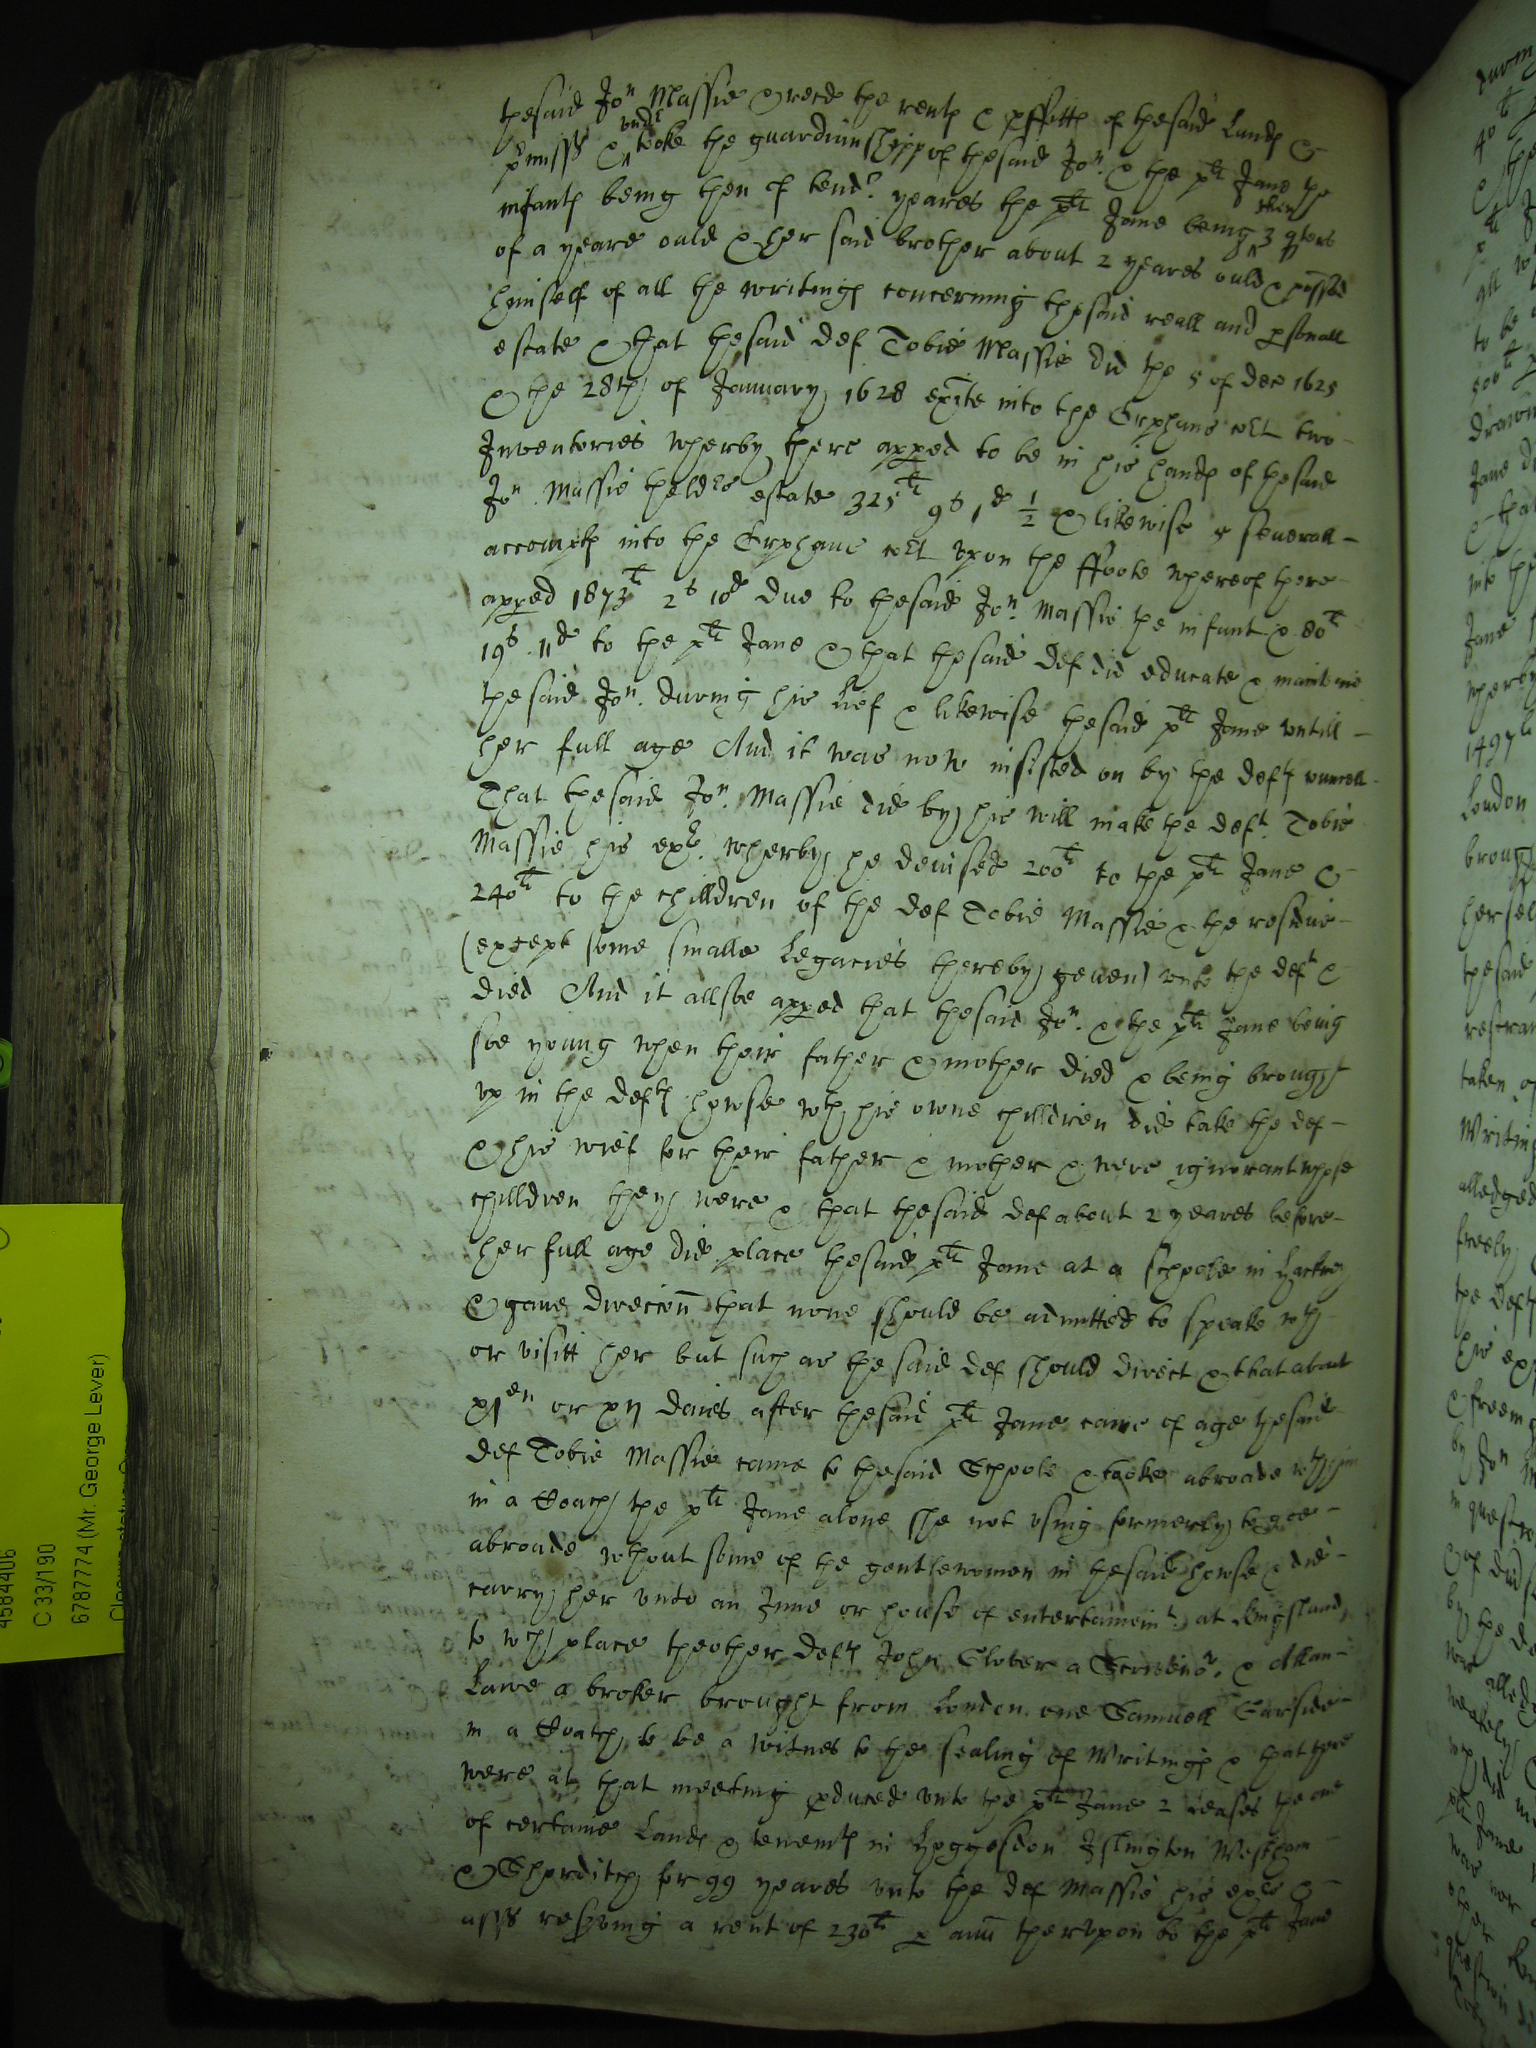 thesaid Jon Massie & recd the rents & pffitts of thesaid Lands &
pmisss & vndr tooke the guardianshipp of thesaid Jon. & the plt Jane the
infants being then of tendr. yeares the plt Jane being then 3 qters
of a yeare ould & her said brother about 2 yeares ould & possed
himself of all the writings concerning thesaid reall and psonall
estate & that thesaid def Tobie Massie did the 5 of Dec 1625
& the 28th of January 1628 exhite into the Orphans cort two
Inventories wherby there apped to be in his hands of thesaid
Jon. Massie theldrs estate 325li 9s 1d ½ & likewise 5 severall
accompts into the Orphans cort vpon the ffoote whereof there
apped 1873li 2s 10d due to thesaid Jon. Massie the infant & 80li
19s 11d to the plt Jane & that thesaid def did educate & mainteine
thesaid Jon. during his lief & likewise thesaid plt Jane vntill
her full age And it was now insisted on by the defts councell
That thesaid Jon. Massie did by his will make the deft. Tobie
Massie his exr. wherby he devised 200li to the plt Jane &
240li to the chilldren of the def Tobie Massie & the residue
(except some smalle Legacies thereby geven) vnto the deft &
died And it allsoe apped that thesaid Jon. & the plt Jane being
soe young when their father & mother died & being brought
vp in the defts howse wth his owne chilldren did take the def
& his wief for their father & mother & were ignorant whose
chilldren they were & that thesaid def about 2 yeares before
her full age did place thesaid plt Jane at a schoole in Hackney
& gave direccon that none should be admitted to speake wth
or visitt her but such as thesaid def should direct & that about
or daies after thesaid plt Jane came of age thesaid
def Tobie Massie came to thesaid Schoole & tooke abroade wth him
in a Coach the plt Jane alone she not vsing formerly to goe
abroade wthout some of the gentlewomen in thesaid howse & did
carry her vnto an Inne or house of entertainemt. at Kingsland
to wch place theother defts John Glover a Scrivenor. & Allan
Lawe a broker brought from London one Samuell Garside
in a Coach to be a witnes to the sealing of Writings & that there
were at that meeting pduced vnto the plt Jane 2 leases the one
of certaine Lands & tenemts in Hoggesdon Islington Westham
& Shorditch for 99 yeares vnto the def Massie his exrs &
asss resving a rent of 230li p ann thervpon to the plt Jane
45844406
C 33/190
6787774 (Mr. George Lever)